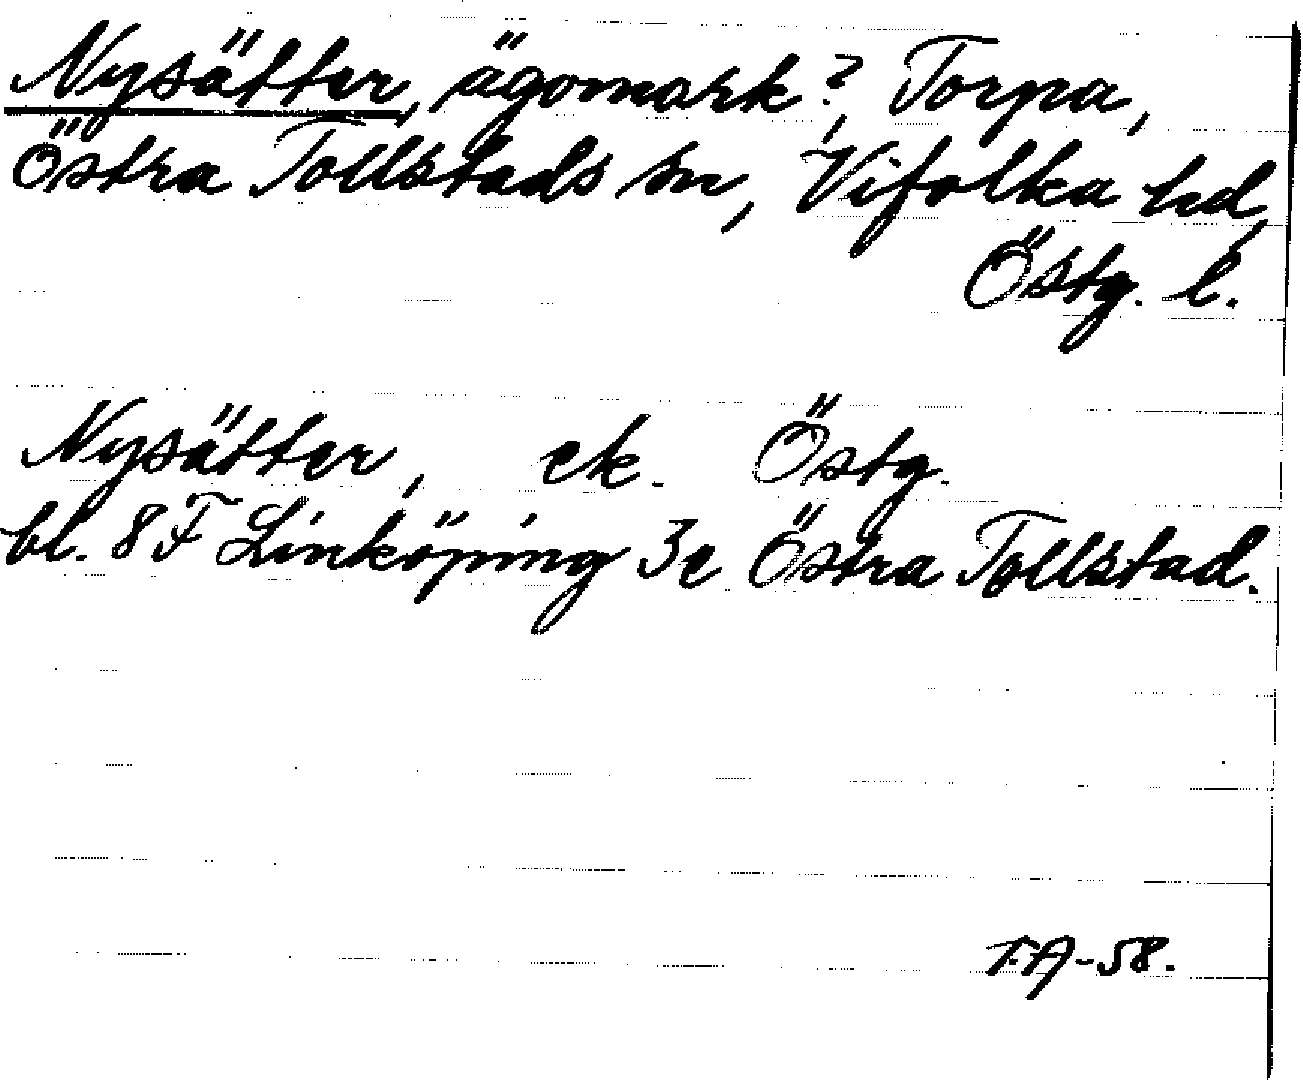 Nysätter, ägomark?, Torpa,
Östra Tollstads sn, Vifolka hd,
Östg. l.
Nysätter, ek. Östg.
bl. 8F Linköping 3e Östra Tollstad.
T.A-58.